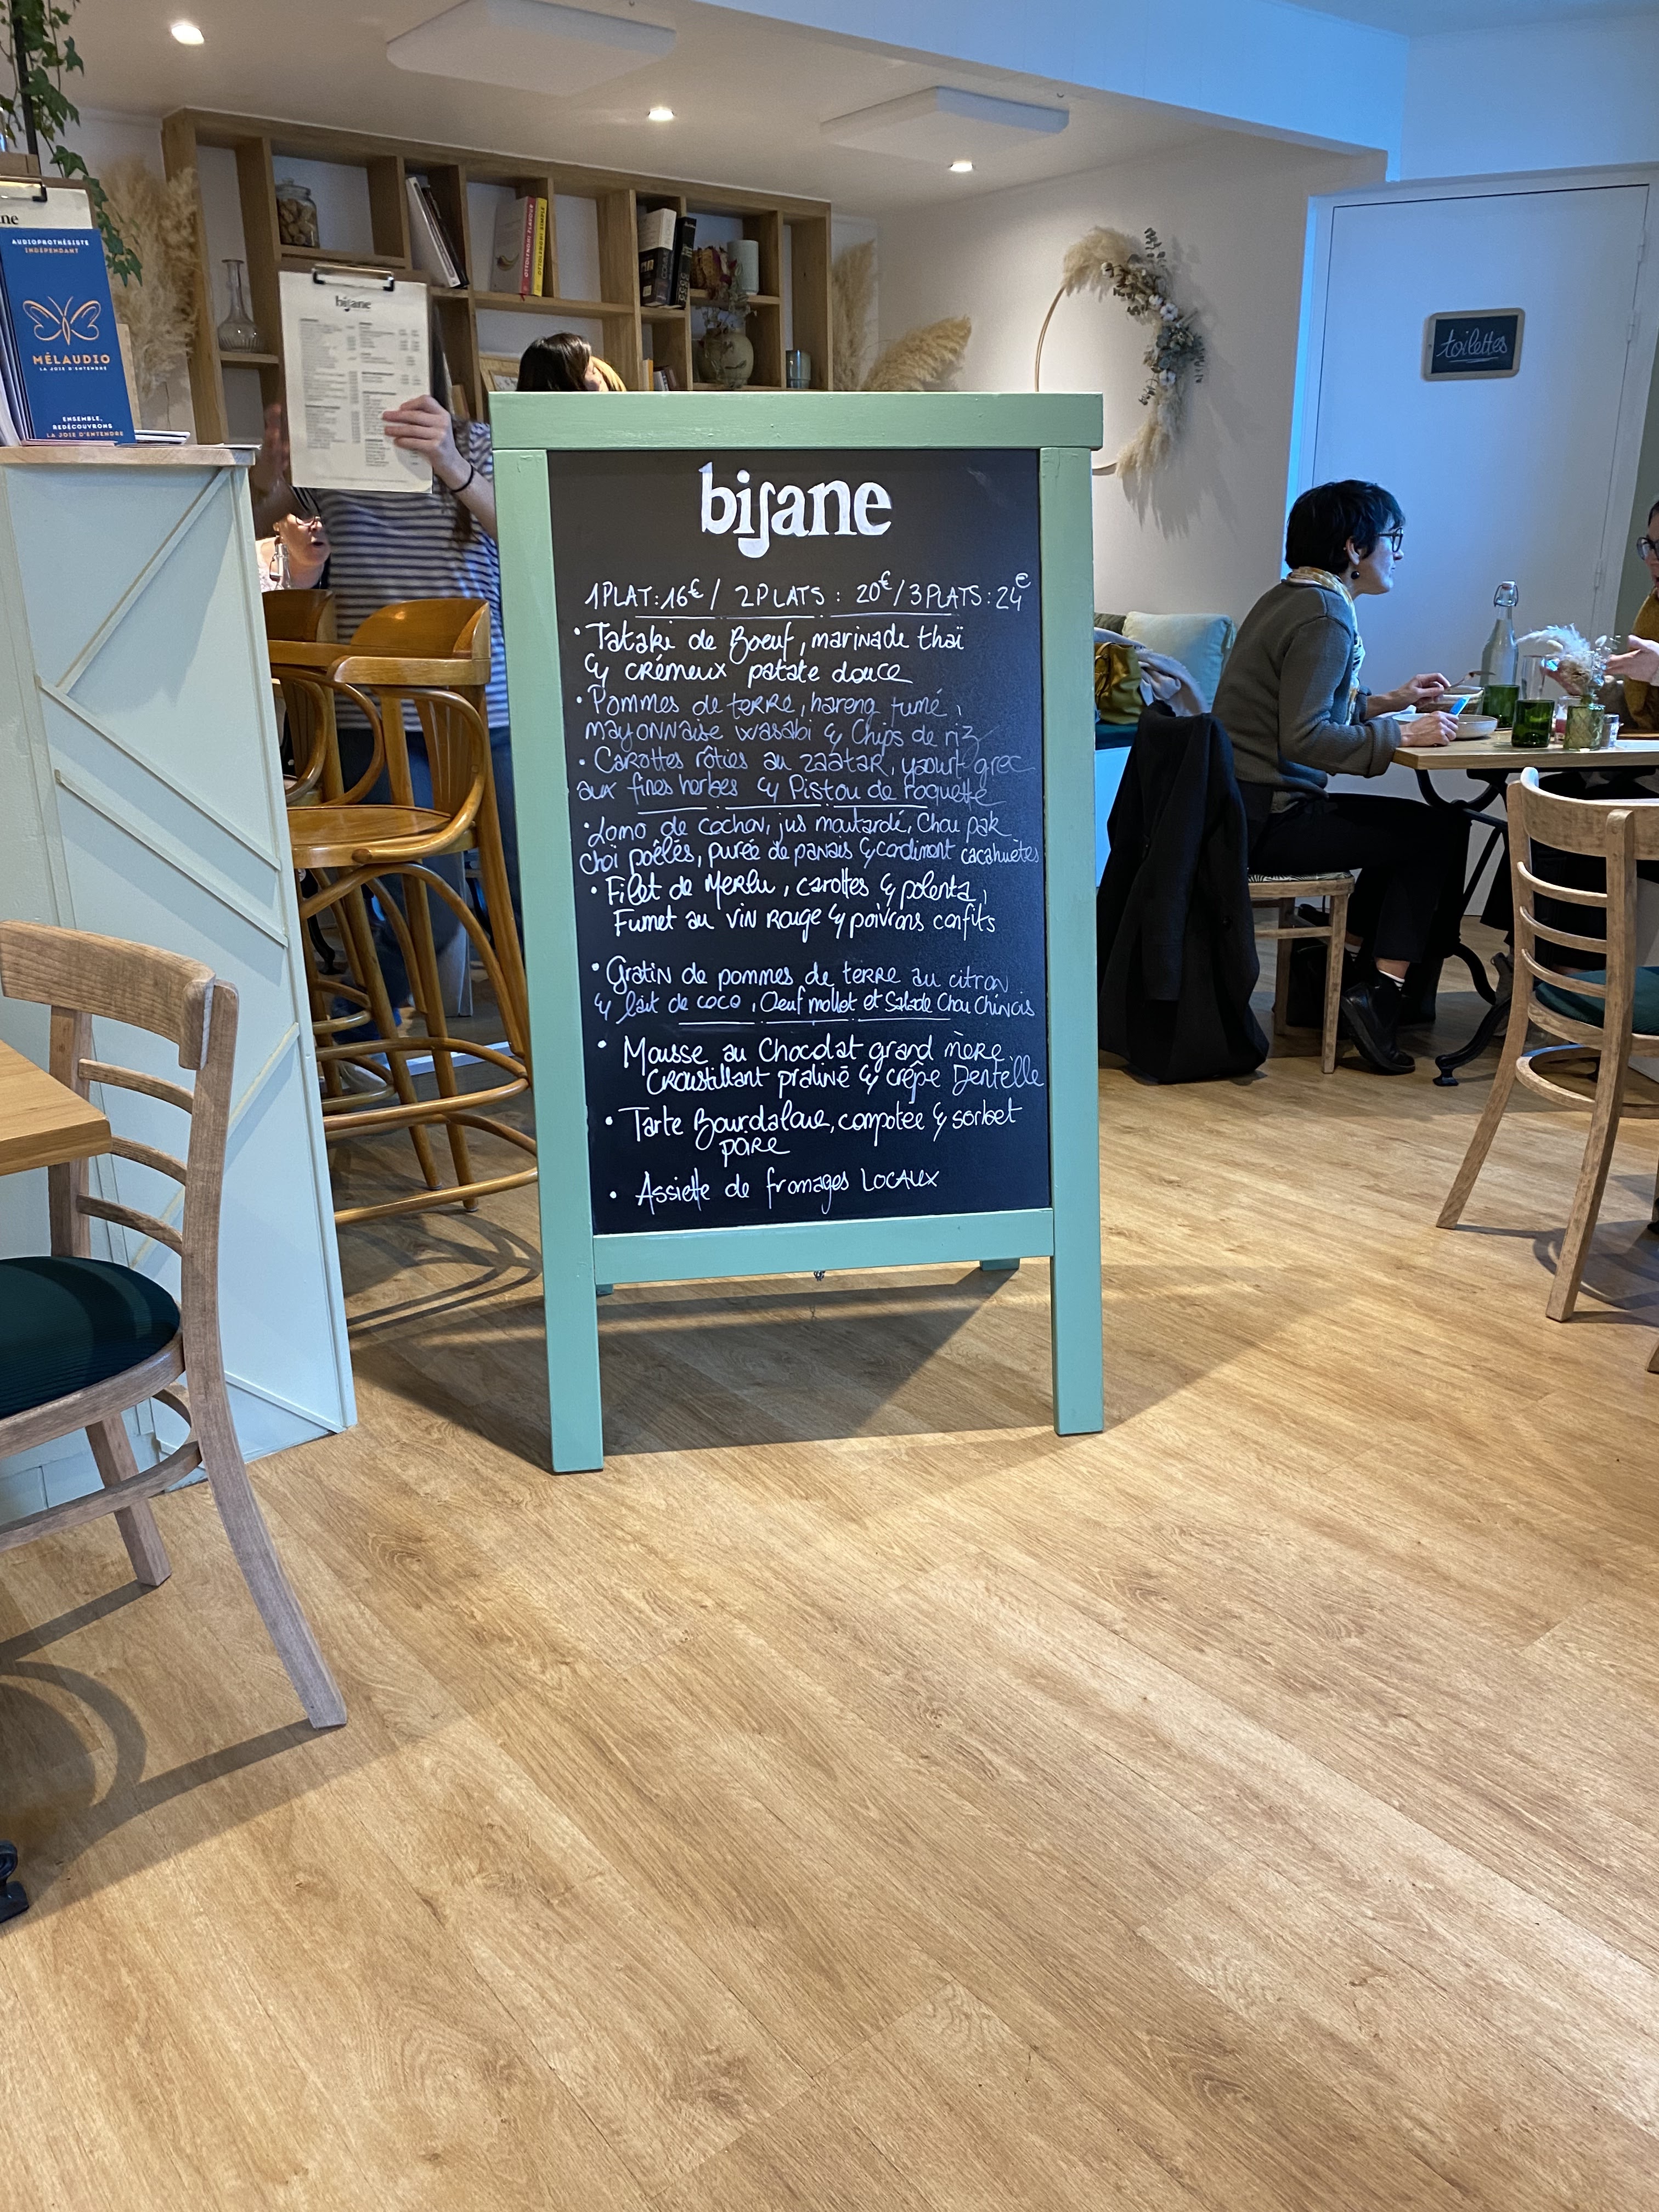 ne
AUDIOPROTHÉSISTE
INDÉPENDANT
MÉLAUDIO
LA JOIE D'ENTENDRE
ENSEMBLE,
REDÉCOUVRONS
LA JOIE D'ENTENDRE
bisane
OTTOLENGHI FLAVOUR
OTTOLENGHI SIMPLE
toilettes
bisane
1PLAT:16€ / 2PLATS : 20€/3PLATS:24€
• Tataki de Boeuf, marinade thaï
& crémeux patate douce
• Pommes de terre, hareng fumé,
mayonnaise wasabi & Chips de riz
• Carottes rôties au zaatar, yaourt grec
aux fines herbes & Pistou de roquette
• Lomo de cochon, jus moutardé, Chou pak
choï poêlés, purée de panais & condiment cacahuètes
• Filet de Merlu, carottes & polenta,
Fumet au vin rouge & poivrons confits
• Gratin de pommes de terre au citron
& lait de coco, Oeuf mollet et Salade Chou Chinois
• Mousse au Chocolat grand mère,
Croustillant praliné & crêpe Dentelle
• Tarte Bourdaloue, compotée & sorbet
poire
• Assiette de fromages LOCAUX